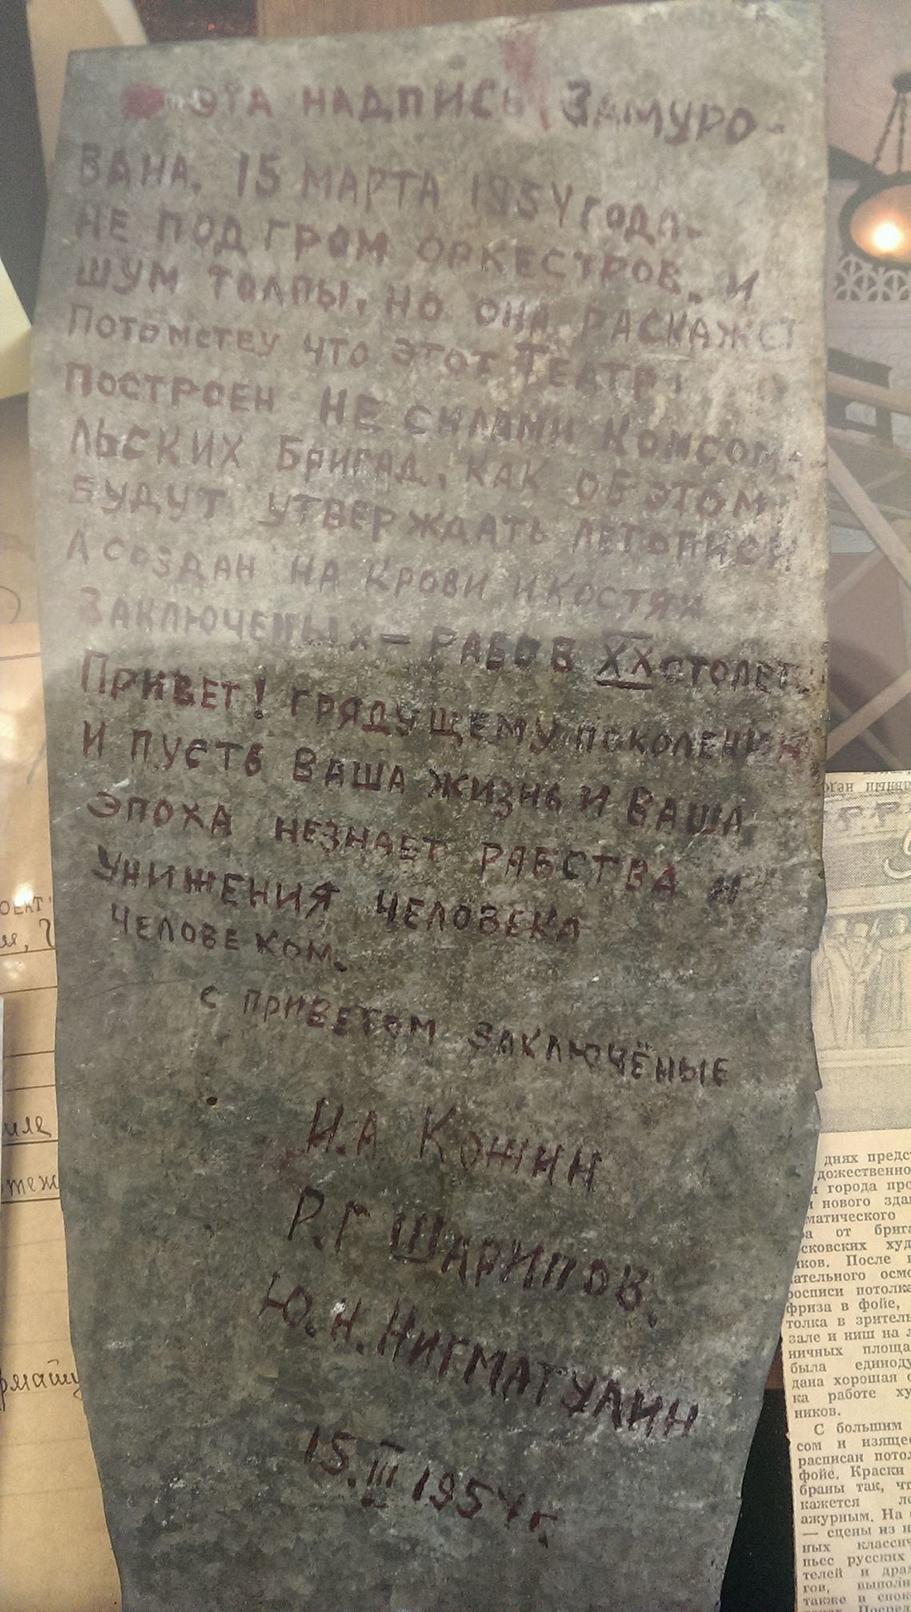 ЭТА НАДПИСЬ ЗАМУРО-
ВАНА. 15 МАРТА 1954 ГОДА.
НЕ ПОД ГРОМ ОРКЕСТРОВ. И
ШУМ ТОЛПЫ, НО ОНА РАСКАЖЕТ
ПОТОМСТВУ ЧТО ЭТОТ ТЕАТР
ПОСТРОЕН НЕ СИЛАМИ КОМСОМО-
ЛЬСКИХ БРИГАД, КАК ОБ ЭТОМ
БУДУТ УТВЕРЖДАТЬ ЛЕТОПИСИ
А СОЗДАН НА КРОВИ И КОСТЯХ
ЗАКЛЮЧЕНЫХ — РАБОВ XX СТОЛЕТ.
ПРИВЕТ! ГРЯДУЩЕМУ ПОКОЛЕНИЮ
И ПУСТЬ ВАША ЖИЗНЬ И ВАША
ЭПОХА НЕЗНАЕТ РАБСТВА И
УНИЖЕНИЯ ЧЕЛОВЕКА
ЧЕЛОВЕКОМ.
С ПРИВЕТОМ ЗАКЛЮЧЁНЫЕ
Н.А КОЖИН
Р.Г ШАРИПОВ.
Ю.Н.НИГМАТУЛИН
15.III 1954г.
днях предст
удожественно
города про
нового зда
матического
от брига
сковских худ
ков. После
ательного осмо
росписи потолка
фриза в фойе,
толка в зритель
зале и ниш на л
ничных площа
была единоду
дана хорошая о
ка работе ху
ников.
С большим
сом и изящес
расписан потол
фойе. Краски
браны так, чт
кажется ле
ажурным. На
— сцены из и
ных классич
пьес русских
телей и дра
гов, выполн
также в спок